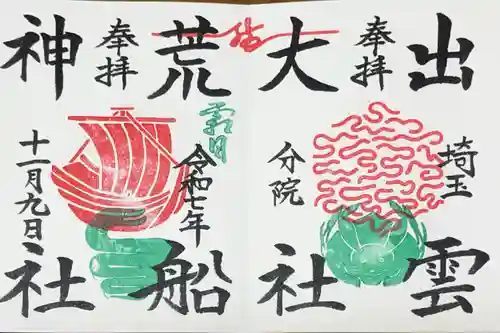 出雲
奉拝
埼玉
分院
大社
荒船
霜月
奉拝
令和七年
十一月九日
神社